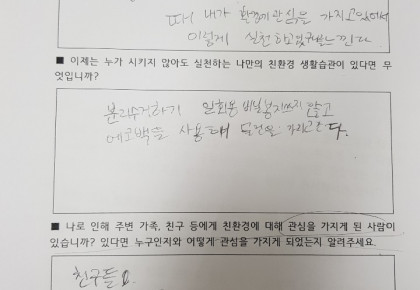 때 내가 환경에 관심을 가지고 있어서
이렇게 실천하고 있구나 느낀다
■ 이제는 누가 시키지 않아도 실천하는 나만의 친환경 생활습관이 있다면 무
엇입니까?
분리수거하기 일회용 비닐봉지쓰지 않고
에코백을 사용해 물건을 가지고 간다.
■ 나로 인해 주변 가족, 친구 등에게 친환경에 대해 관심을 가지게 된 사람이
있습니까? 있다면 누구인지와 어떻게 관성을 가지게 되었는지 알려주세요.
친구들요